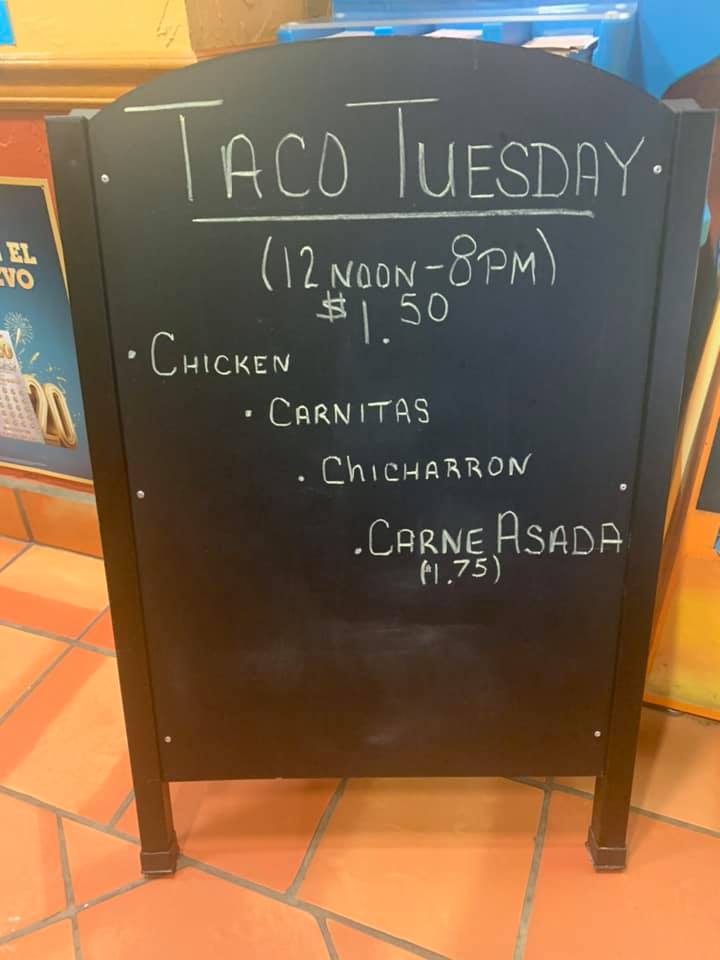 TACO TUESDAY
(12 NOON - 8PM)
$1.50
· CHICKEN
· CARNITAS
· CHICHARRON
· CARNE ASADA
($1.75)
EL
VO
20